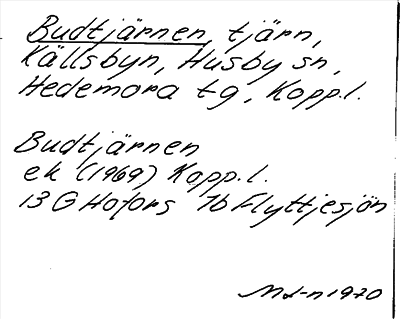 Budtjärnen, tjärn,
Källsbyn, Husby sn,
Hedemora tg, Kopp.l.
Budtjärnen
ek (1969) Kopp.l.
13 G Hofors 7b Flyttjesjön
1970